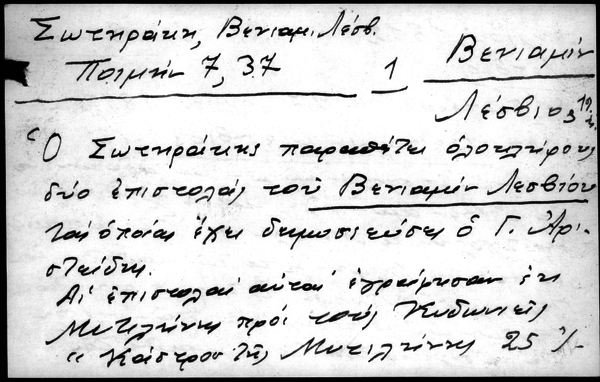 Σωτηράκη, Βενιαμ. Λέσβ.
Ποιμήν 7, 37 1 Βενιαμίν
Λέσβιος
Ὁ Σωτηράκης παραθέτει ὁλοκλήρους
δύο ἐπιστολάς τοῦ Βενιαμίν Λεσβίου
τάς ὁποίας ἔχει δημοσιεύσει ὁ Γ. Ἀρι-
στείδης.
Αἱ ἐπιστολαί αὐταί ἐγράφησαν ἐκ
Μυτιλήνης πρός τούς Κυδωνιεῖς
"Κάστρος τῆς Μυτιλήνης 25